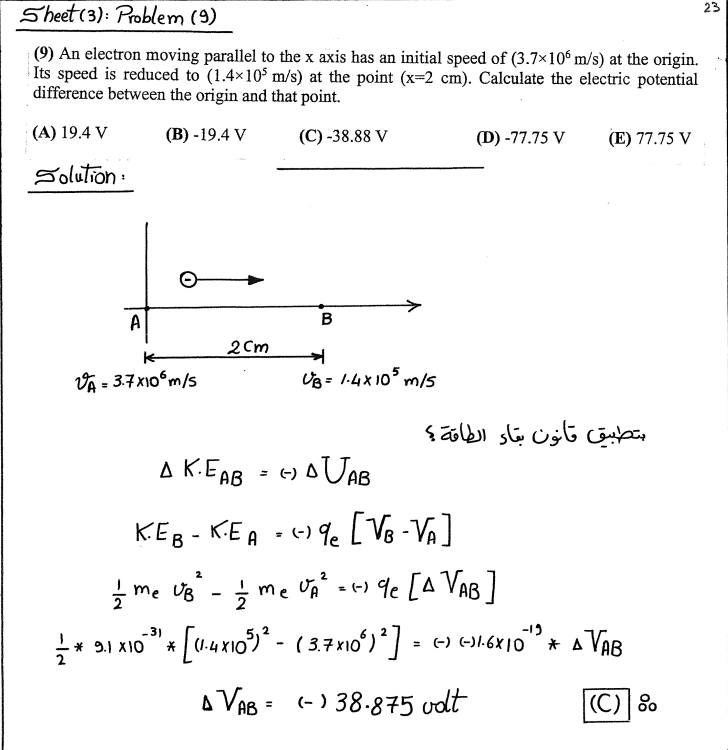 Sheet(3): Problem (9)
23
(9) An electron moving parallel to the x axis has an initial speed of (3.7×10⁶ m/s) at the origin.
Its speed is reduced to (1.4×10⁵ m/s) at the point (x=2 cm). Calculate the electric potential
difference between the origin and that point.
(A) 19.4 V (B) -19.4 V (C) -38.88 V (D) -77.75 V (E) 77.75 V
Solution:
⊖
A B
2 Cm
v_A = 3.7×10⁶ m/s v_B = 1.4×10⁵ m/s
بتطبيق قانون بقاء الطاقة ؛
Δ K.E_AB = (-) Δ U_AB
K.E_B - K.E_A = (-) q_e [V_B - V_A]
1/2 m_e v_B² - 1/2 m_e v_A² = (-) q_e [Δ V_AB]
1/2 * 9.1×10⁻³¹ * [(1.4×10⁵)² - (3.7×10⁶)²] = (-) (-)1.6×10⁻¹⁹ * Δ V_AB
Δ V_AB = (-) 38.875 volt (C)